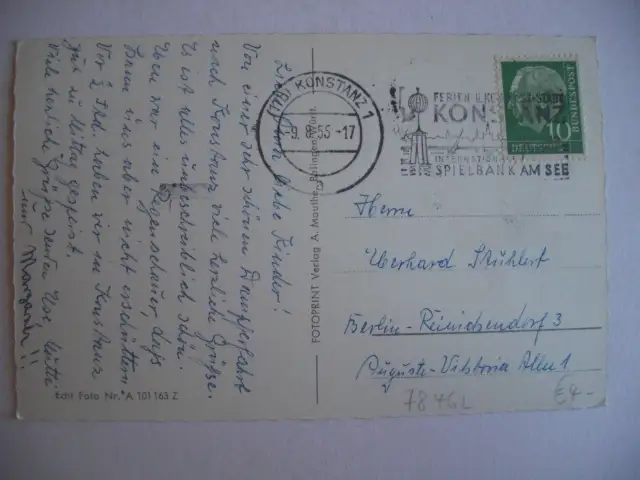 Liebe Kinder!
Von einer sehr schönen Dampferfahrt
nach Konstanz viele herzliche Grüsse.
Es ist alles unbeschreiblich schön.
Eben war ein Regenschauer, dass
kann uns aber nicht erschüttern
Vor 2 Std. haben wir in Konstanz
gut zu Mittag gespeist.
Viele herzliche Grüße senden Mutti
und
Echt Foto Nr. A 101 165 Z
FOTOPRINT Verlag A. Mauthe,
(17b) KONSTANZ 1
-9.8.55-17
FERIEN U.
KONSTANZ
INTERNATION
SPIELBANK AM SEE
10
DEUTSCHE
BUNDESPOST
Herrn
Eberhard Stuhlert
Berlin-Reinickendorf 3
Auguste-Viktoria Allee 1
78 462